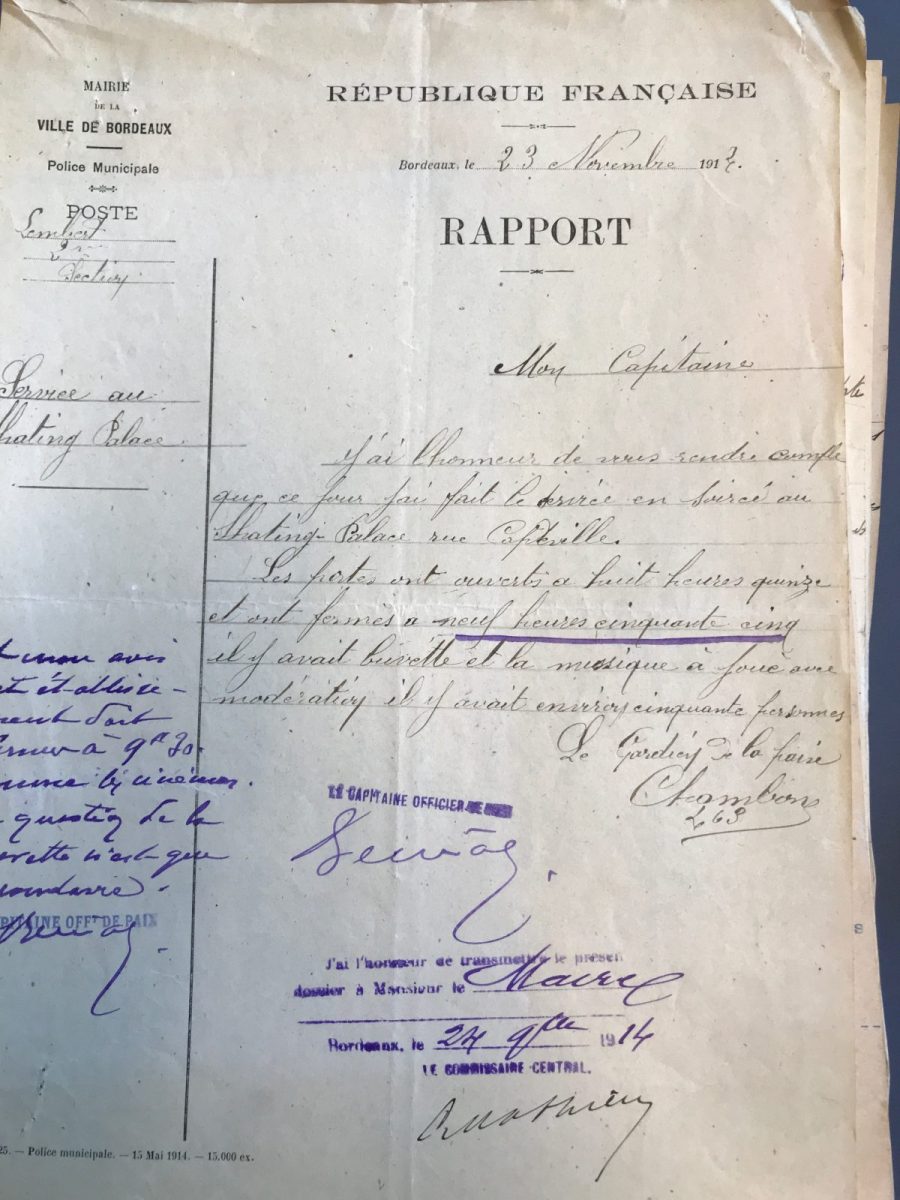 MAIRIE
DE LA
VILLE DE BORDEAUX
Police Municipale
POSTE
Lambert
2me
Section
Service au
Skating Palace.
t mon avis
et établisse-
ment doit
fermer à 9h 30.
comme les cinémas.
question de la
buvette n'est que
secondaire.
CAPITAINE OFFr DE PAIX
RÉPUBLIQUE FRANÇAISE
Bordeaux, le 23 Novembre 191
RAPPORT
Mon Capitaine
J'ai l'honneur de vous rendre compte
que ce jour j'ai fait le service en soirée au
Skating-Palace rue Capdeville.
Les portes ont ouverts a huit heures quinze
et ont fermés a neuf heures cinquante cinq
il y avait buvette et la musique à joué avec
modération il y avait environ cinquante personnes
Le Gardien de la paix
Chambon
463
LE CAPITAINE OFFICIER DE PAIX
J'ai l'honneur de transmettre le présent
dossier à Monsieur le Maire
Bordeaux, le 24 9bre 1914
LE COMMISSAIRE CENTRAL.
25. — Police municipale. — 15 Mai 1914. — 15.000 ex.